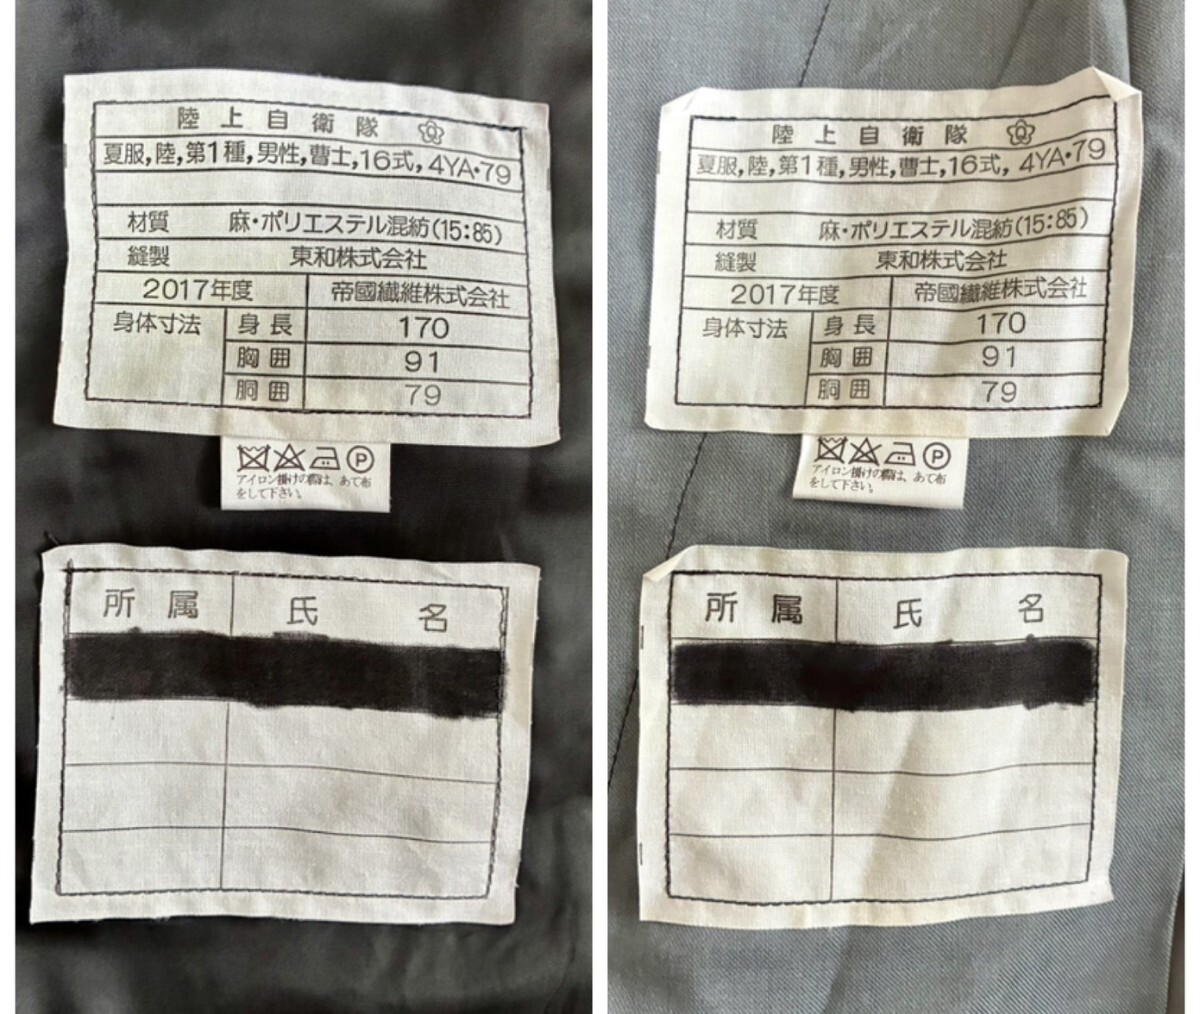 陸上自衛隊
夏服,陸,第1種,男性,曹士,16式,4YA・79
材質 麻・ポリエステル混紡(15:85)
縫製 東和株式会社
2017年度 帝國繊維株式会社
身体寸法 身長 170
胸囲 91
胴囲 79
P
アイロン掛けの際は、あて布
をして下さい。
所属 氏名
陸上自衛隊
夏服,陸,第1種,男性,曹士,16式,4YA・79
材質 麻・ポリエステル混紡(15:85)
縫製 東和株式会社
2017年度 帝國繊維株式会社
身体寸法 身長 170
胸囲 91
胴囲 79
P
アイロン掛けの際は、あて布
をして下さい。
所属 氏名